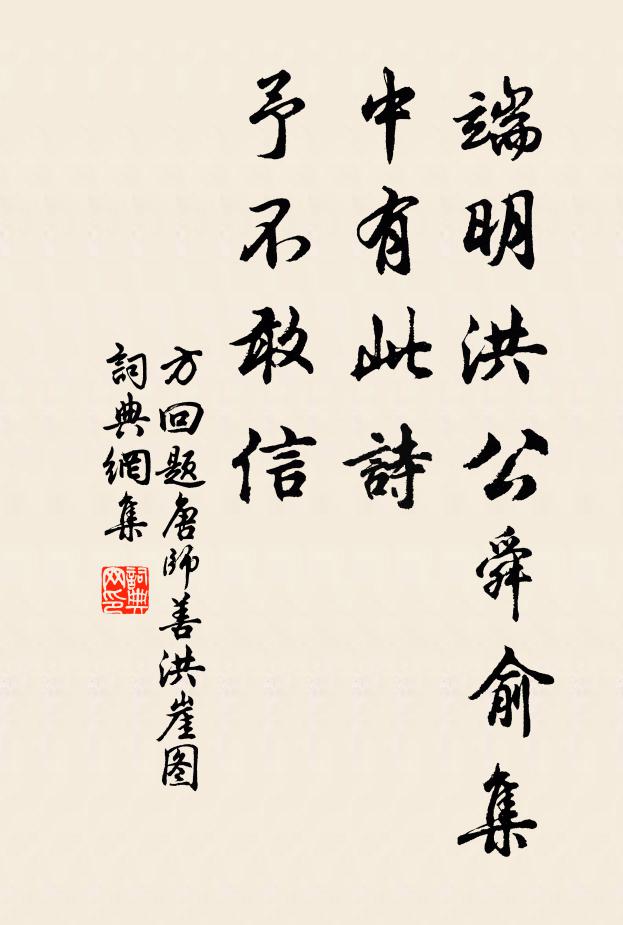 端明洪公舜俞集
中有此詩
予不敢信
方回题唐師善洪崖图
詞典網集
詞典网印